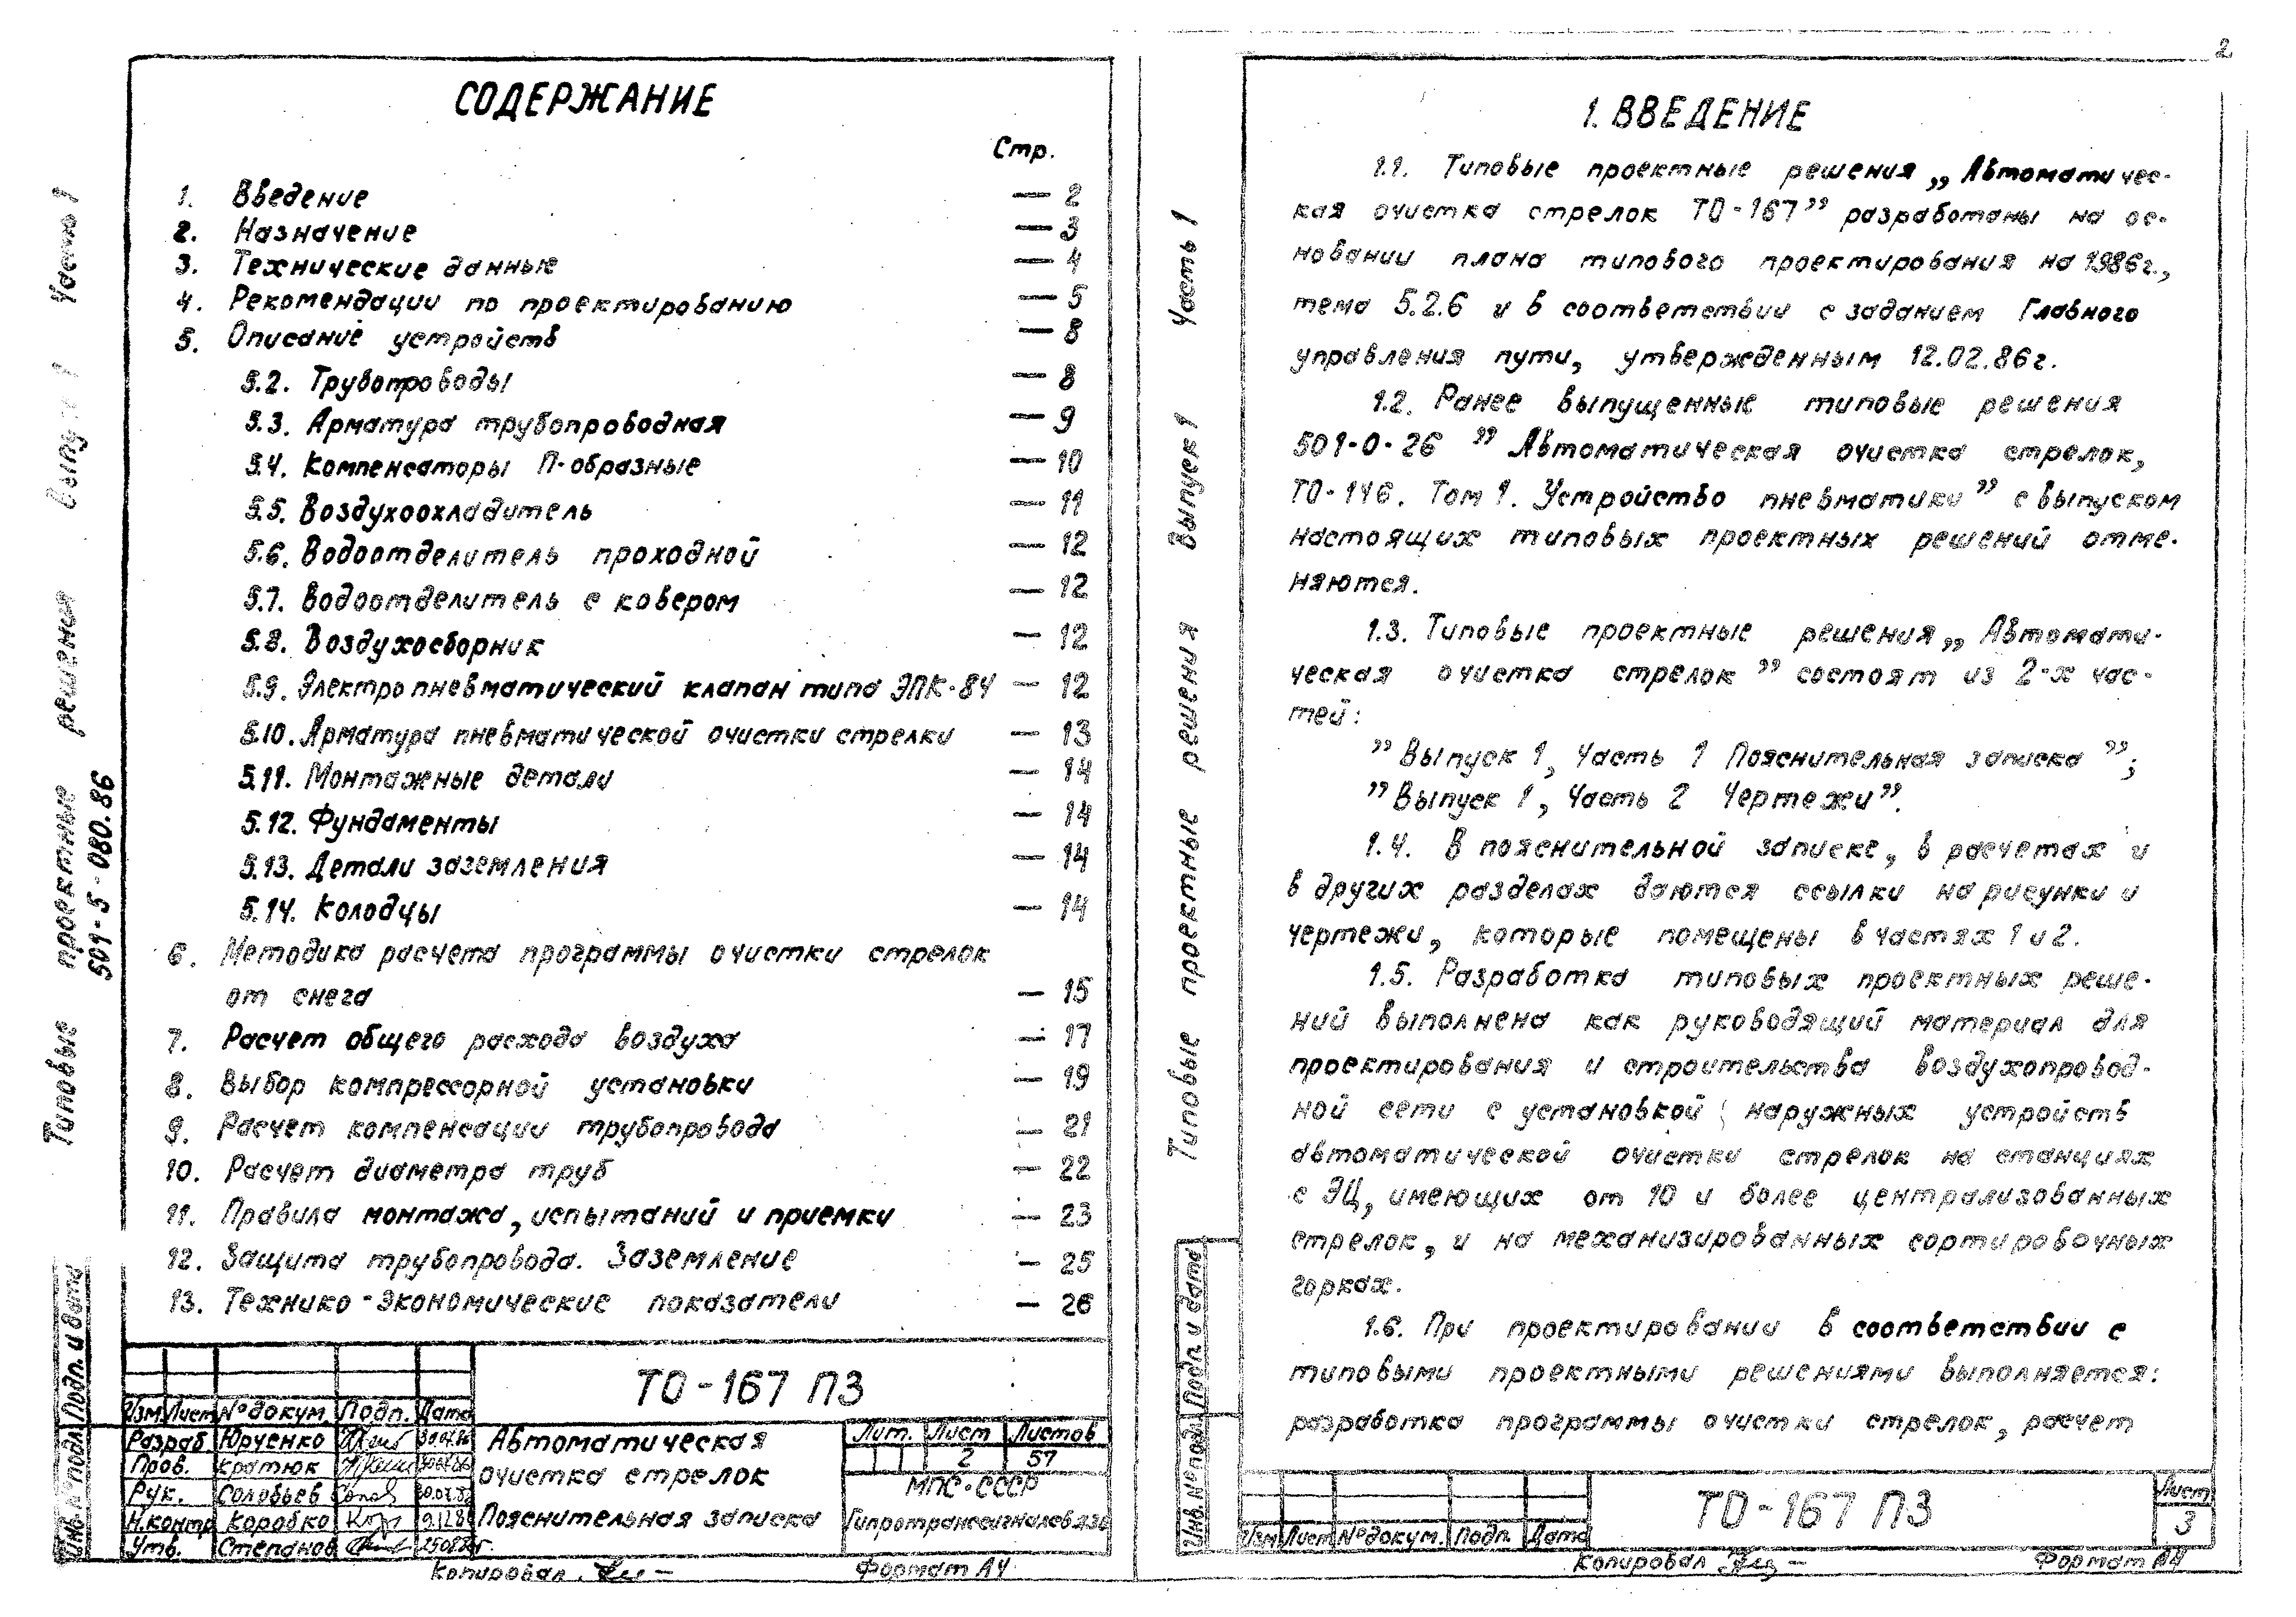 2
СОДЕРЖАНИЕ
Стр.
1. Введение — 2
2. Назначение — 3
3. Технические данные — 4
4. Рекомендации по проектированию — 5
5. Описание устройств — 8
5.2. Трубопроводы — 8
5.3. Арматура трубопроводная — 9
5.4. Компенсаторы П-образные — 10
5.5. Воздухоохладитель — 11
5.6. Водоотделитель проходной — 12
5.7. Водоотделитель с ковером — 12
5.8. Воздухосборник — 12
5.9. Электропневматический клапан типа ЭПК-84 — 12
5.10. Арматура пневматической очистки стрелки — 13
5.11. Монтажные детали — 14
5.12. Фундаменты — 14
5.13. Детали заземления — 14
5.14. Колодцы — 14
6. Методика расчета программы очистки стрелок
от снега — 15
7. Расчет общего расхода воздуха — 17
8. Выбор компрессорной установки — 19
9. Расчет компенсации трубопровода — 21
10. Расчет диаметра труб — 22
11. Правила монтажа, испытаний и приемки — 23
12. Защита трубопровода. Заземление — 25
13. Технико-экономические показатели — 26
Типовые проектные решения Выпуск 1 Часть 1
501-5-080.86
Инв. № подл. Подп. и дата
ТО-167 ПЗ
Изм Лист № докум. Подп. Дата
Разраб. Юрченко
Пров. Кратюк
Рук. Соловьев
Н.контр Коробко
Утв. Степанов
Автоматическая
очистка стрелок
Пояснительная записка
Лит. Лист Листов
2 57
МПС-СССР
Гипротранссигналсвязь
Копировал
Формат А4
1. ВВЕДЕНИЕ
1.1. Типовые проектные решения „Автоматичес-
кая очистка стрелок ТО-167” разработаны на ос-
новании плана типового проектирования на 1986г.,
тема 5.2.6 и в соответствии с заданием Главного
управления пути, утвержденным 12.02.86г.
1.2. Ранее выпущенные типовые решения
501-0-26 ” Автоматическая очистка стрелок,
ТО-146. Том 1. Устройство пневматики” с выпуском
настоящих типовых проектных решений отме-
няются.
1.3. Типовые проектные решения „ Автомати-
ческая очистка стрелок ” состоят из 2-х час-
тей:
” Выпуск 1, Часть 1 Пояснительная записка ”;
” Выпуск 1, Часть 2 Чертежи”.
1.4. В пояснительной записке, в расчетах и
в других разделах даются ссылки на рисунки и
чертежи, которые помещены в частях 1 и 2.
1.5. Разработка типовых проектных реше-
ний выполнена как руководящий материал для
проектирования и строительства воздухопровод-
ной сети с установкой наружных устройств
автоматической очистки стрелок на станциях
с ЭЦ, имеющих от 10 и более централизованных
стрелок, и на механизированных сортировочных
горках.
1.6. При проектировании в соответствии с
типовыми проектными решениями выполняется:
разработка программы очистки стрелок, расчет
Типовые проектные решения Выпуск 1 Часть 1
Инв. № подл. Подп. и дата
Изм Лист № докум. Подп. Дата
ТО-167 ПЗ
Лист
3
Копировал
Формат А4